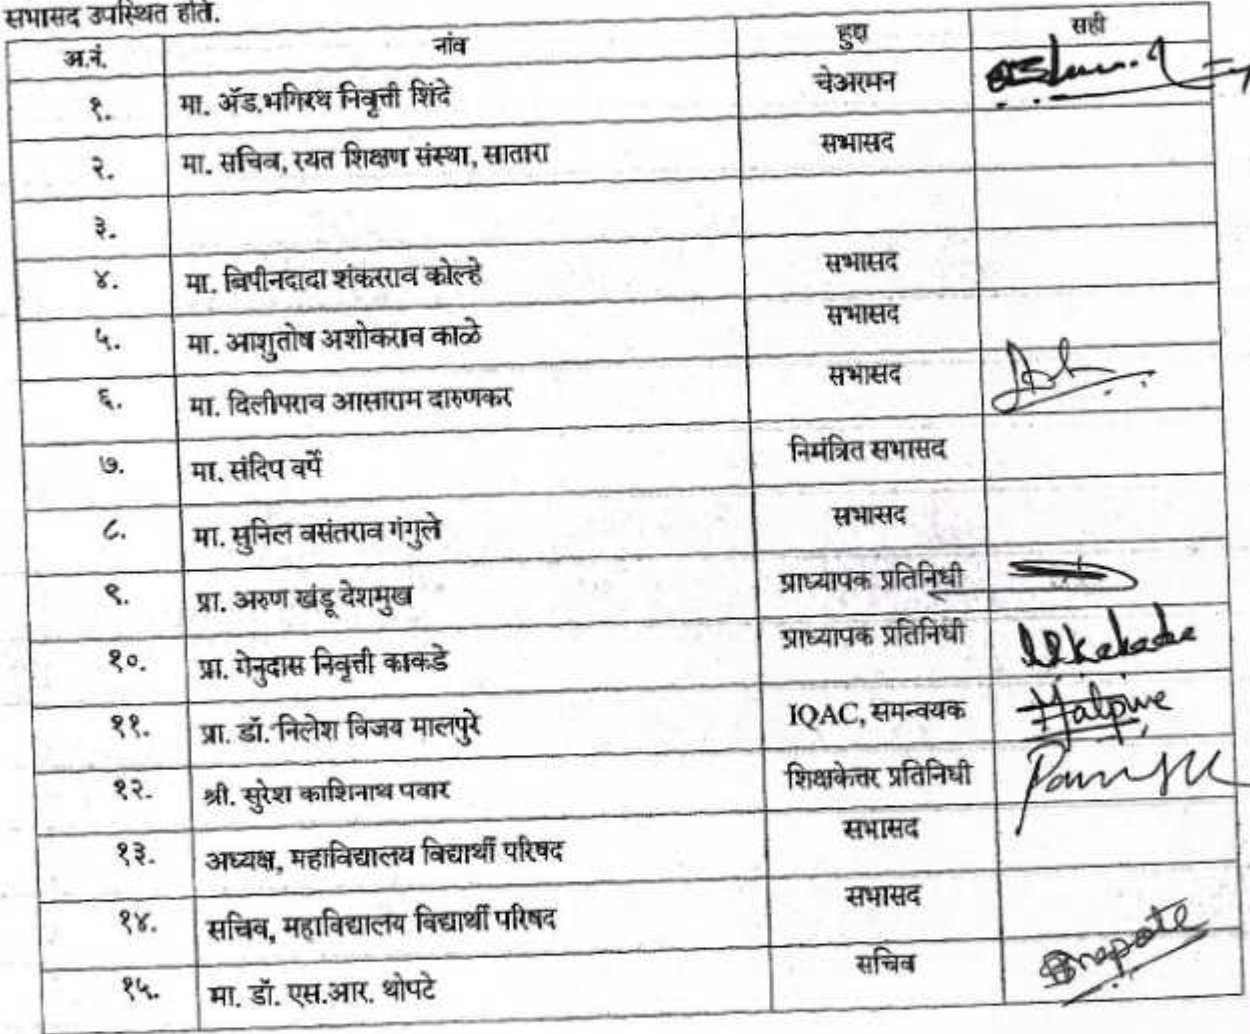 सभासद उपस्थित होते.
अ.नं. नांव हुद्दा सही
१. मा. ॲड.भगिरथ निवृत्ती शिंदे चेअरमन
२. मा. सचिव, रयत शिक्षण संस्था, सातारा सभासद
३.
४. मा. बिपीनदादा शंकरराव कोल्हे सभासद
५. मा. आशुतोष अशोकराव काळे सभासद
६. मा. दिलीपराव आसाराम दारुणकर सभासद
७. मा. संदिप वर्पे निमंत्रित सभासद
८. मा. सुनिल वसंतराव गंगुले सभासद
९. प्रा. अरुण खंडू देशमुख प्राध्यापक प्रतिनिधी
१०. प्रा. गेनुदास निवृत्ती काकडे प्राध्यापक प्रतिनिधी
११. प्रा. डॉ. निलेश विजय मालपुरे IQAC, समन्वयक
१२. श्री. सुरेश काशिनाथ पवार शिक्षकेत्तर प्रतिनिधी
१३. अध्यक्ष, महाविद्यालय विद्यार्थी परिषद सभासद
१४. सचिव, महाविद्यालय विद्यार्थी परिषद सभासद
१५. मा. डॉ. एस.आर. थोपटे सचिव